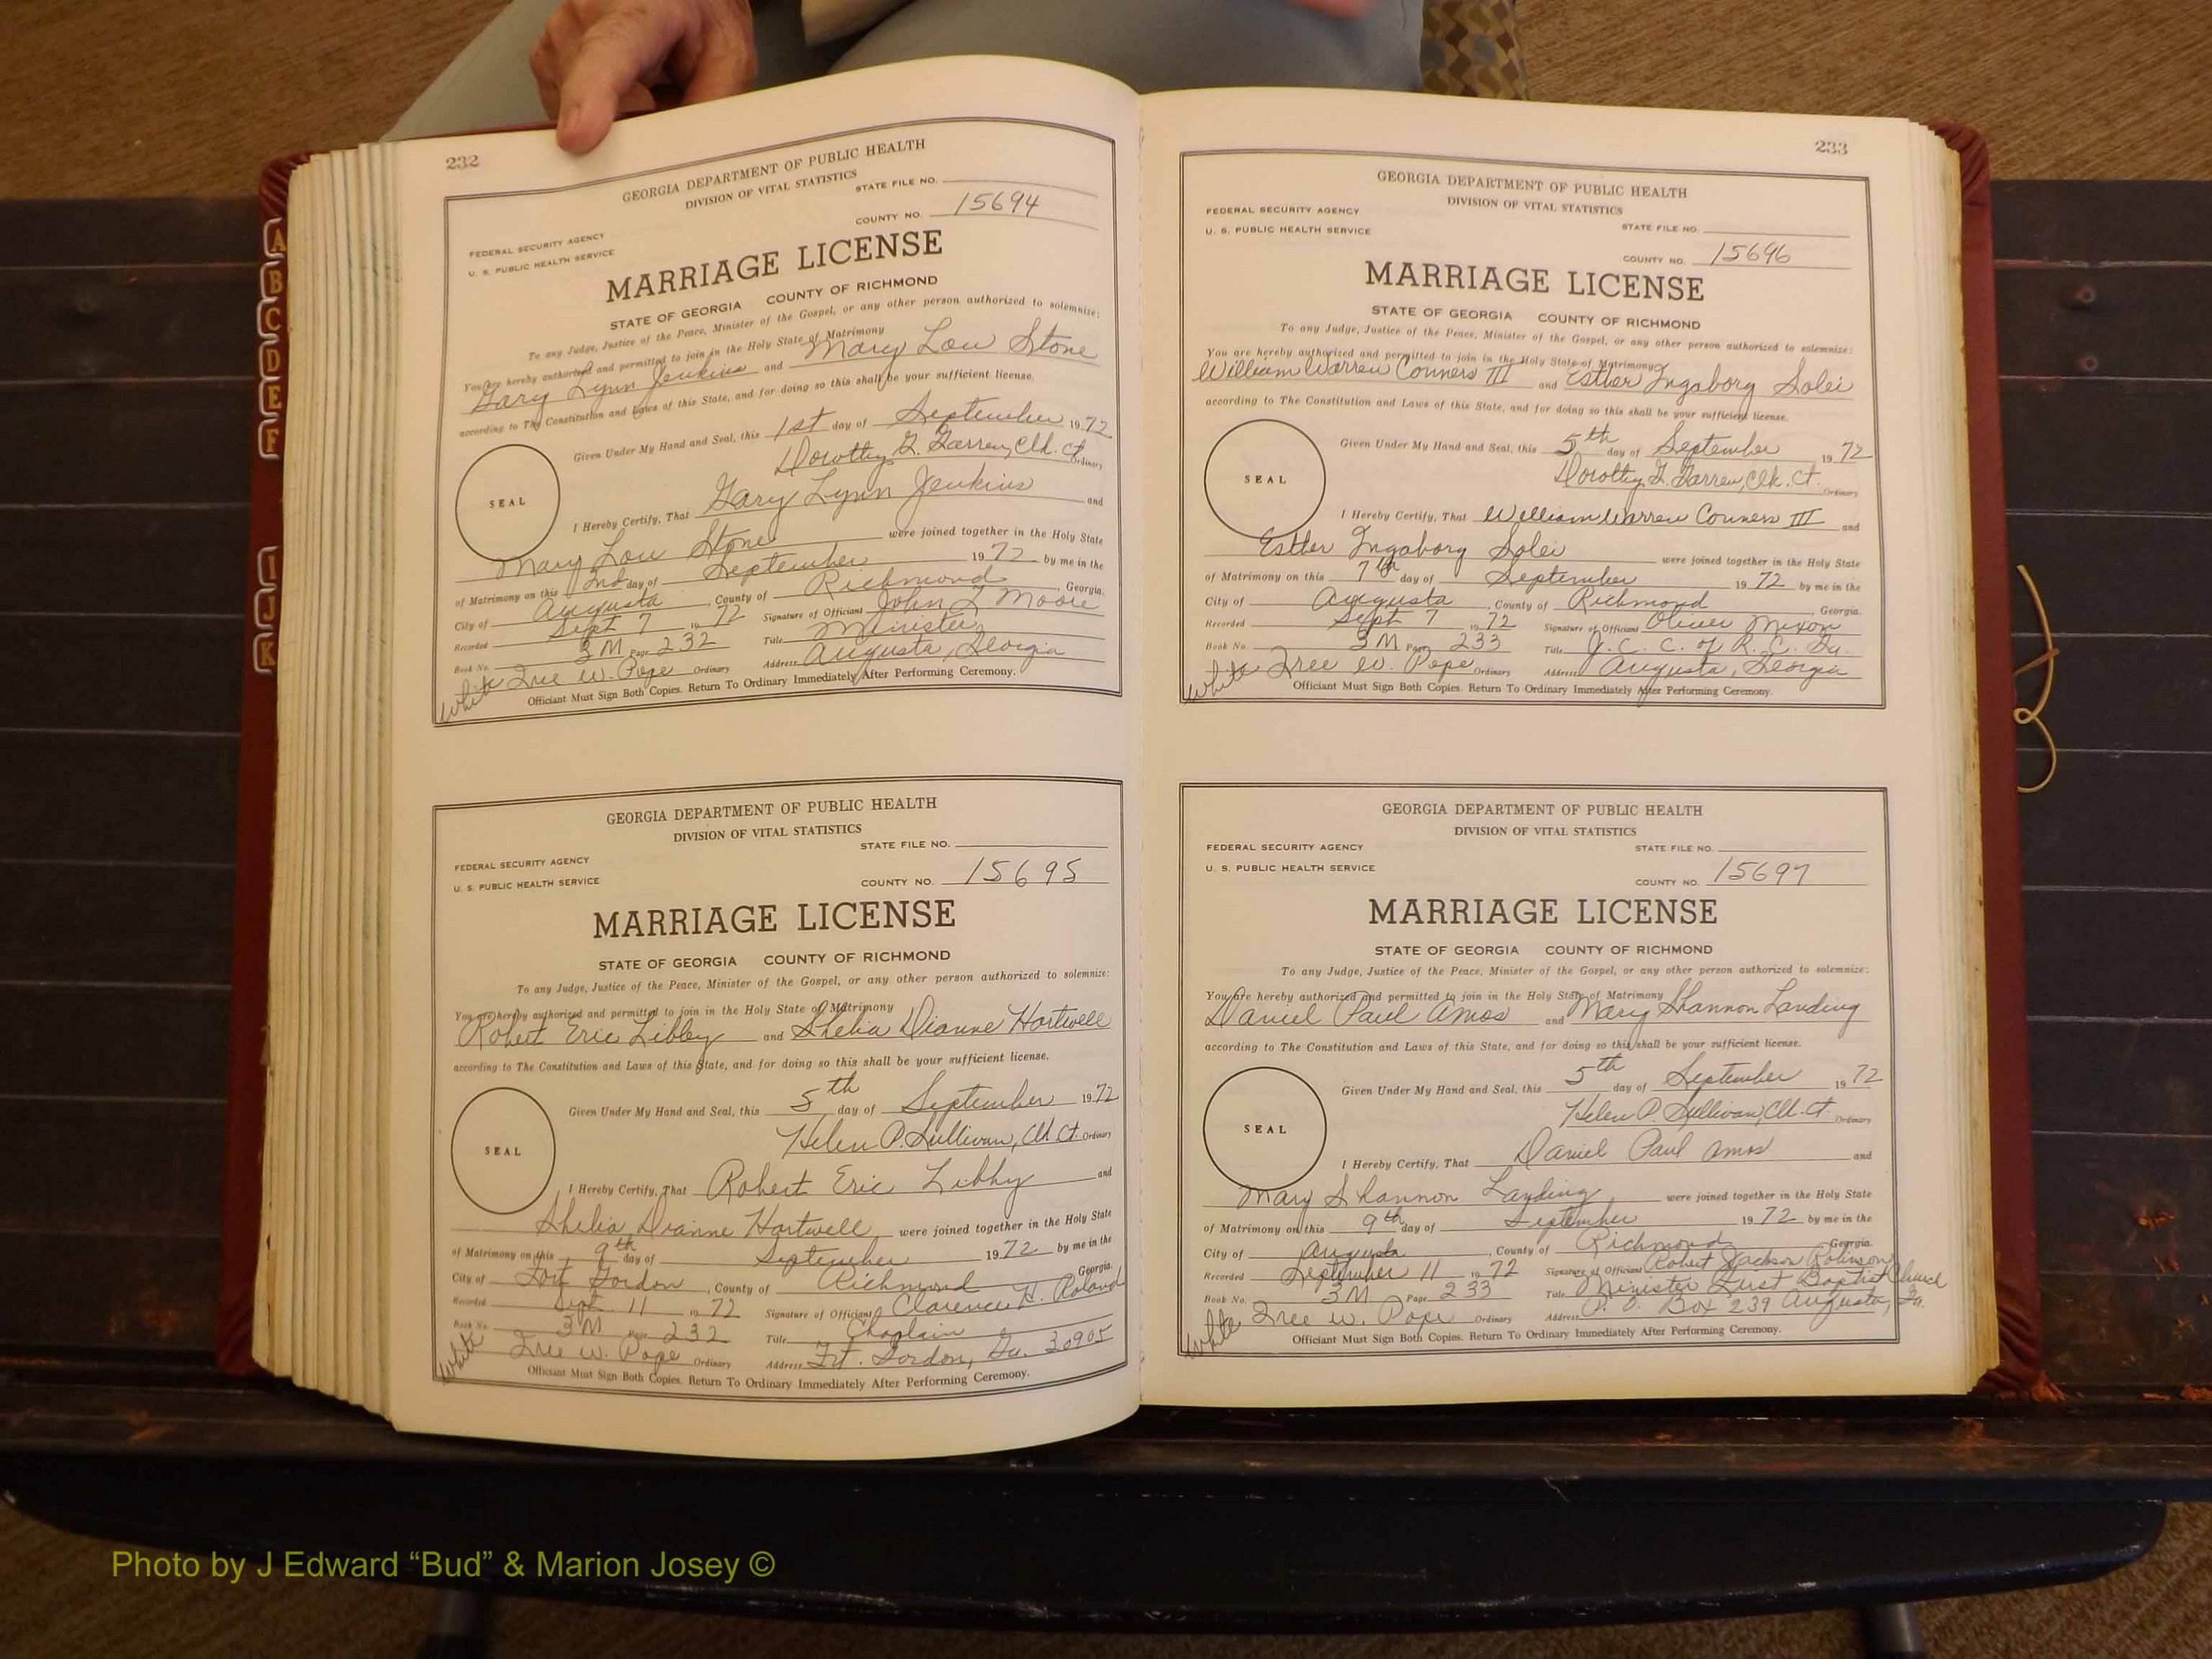 A
B
C
D
E
F
I
J
K
232
GEORGIA DEPARTMENT OF PUBLIC HEALTH
DIVISION OF VITAL STATISTICS
STATE FILE NO.
COUNTY NO. 15694
FEDERAL SECURITY AGENCY
U. S. PUBLIC HEALTH SERVICE
MARRIAGE LICENSE
STATE OF GEORGIA COUNTY OF RICHMOND
To any Judge, Justice of the Peace, Minister of the Gospel, or any other person authorized to solemnize:
You are hereby authorized and permitted to join in the Holy State of Matrimony
Gary Lynn Jenkins and Mary Lou Stone
according to The Constitution and Laws of this State, and for doing so this shall be your sufficient license.
Given Under My Hand and Seal, this 1st day of September 1972
Dorothy G. Garren, Clk. Ct. Ordinary
SEAL
I Hereby Certify, That Gary Lynn Jenkins and
Mary Lou Stone were joined together in the Holy State
of Matrimony on this 2nd day of September 1972 by me in the
City of Augusta, County of Richmond, Georgia.
Recorded Sept 7 1972 Signature of Official John L Moore
Book No. 3M Page 232 Title Minister
White Iree W. Pope Ordinary Address Augusta, Georgia
Officiant Must Sign Both Copies. Return To Ordinary Immediately After Performing Ceremony.
GEORGIA DEPARTMENT OF PUBLIC HEALTH
DIVISION OF VITAL STATISTICS
STATE FILE NO.
FEDERAL SECURITY AGENCY
U. S. PUBLIC HEALTH SERVICE
COUNTY NO. 15695
MARRIAGE LICENSE
STATE OF GEORGIA COUNTY OF RICHMOND
To any Judge, Justice of the Peace, Minister of the Gospel, or any other person authorized to solemnize:
You are hereby authorized and permitted to join in the Holy State of Matrimony
Robert Eric Libbey and Shelia Dianne Hartwell
according to The Constitution and Laws of this State, and for doing so this shall be your sufficient license.
Given Under My Hand and Seal, this 5th day of September 1972
Helen P. Sullivan, Clk. Ct. Ordinary
SEAL
I Hereby Certify, That Robert Eric Libby and
Shelia Dianne Hartwell were joined together in the Holy State
of Matrimony on this 9th day of September 1972 by me in the
City of Fort Gordon, County of Richmond Georgia.
Recorded Sept. 11 1972 Signature of Official Clarence H. Roland
Book No. 3M Page 232 Title Chaplain
White Iree W. Pope Ordinary Address Ft. Gordon, Ga. 30905
Officiant Must Sign Both Copies. Return To Ordinary Immediately After Performing Ceremony.
233
GEORGIA DEPARTMENT OF PUBLIC HEALTH
DIVISION OF VITAL STATISTICS
FEDERAL SECURITY AGENCY
U. S. PUBLIC HEALTH SERVICE
STATE FILE NO.
COUNTY NO. 15696
MARRIAGE LICENSE
STATE OF GEORGIA COUNTY OF RICHMOND
To any Judge, Justice of the Peace, Minister of the Gospel, or any other person authorized to solemnize:
You are hereby authorized and permitted to join in the Holy State of Matrimony
William Warren Conners III and Esther Ingaborg Solei
according to The Constitution and Laws of this State, and for doing so this shall be your sufficient license.
Given Under My Hand and Seal, this 5th day of September 1972
Dorothy G. Garren, Clk. Ct. Ordinary
SEAL
I Hereby Certify, That William Warren Conners III and
Esther Ingaborg Solei were joined together in the Holy State
of Matrimony on this 7th day of September 1972 by me in the
City of Augusta, County of Richmond, Georgia.
Recorded Sept 7 1972 Signature of Official Oliver Mixon
Book No. 3M Page 233 Title J. C. C. of R. C. Ga.
White Iree W. Pope Ordinary Address Augusta, Georgia
Officiant Must Sign Both Copies. Return To Ordinary Immediately After Performing Ceremony.
GEORGIA DEPARTMENT OF PUBLIC HEALTH
DIVISION OF VITAL STATISTICS
FEDERAL SECURITY AGENCY
STATE FILE NO.
U. S. PUBLIC HEALTH SERVICE
COUNTY NO. 15697
MARRIAGE LICENSE
STATE OF GEORGIA COUNTY OF RICHMOND
To any Judge, Justice of the Peace, Minister of the Gospel, or any other person authorized to solemnize:
You are hereby authorized and permitted to join in the Holy State of Matrimony
Daniel Paul Amos and Mary Shannon Landing
according to The Constitution and Laws of this State, and for doing so this shall be your sufficient license.
Given Under My Hand and Seal, this 5th day of September 1972
Helen P. Sullivan, Clk. Ct. Ordinary
SEAL
I Hereby Certify, That Daniel Paul Amos and
Mary Shannon Landing were joined together in the Holy State
of Matrimony on this 9th day of September 1972 by me in the
City of Augusta, County of Richmond Georgia.
Recorded September 11 1972 Signature of Official Robert Jackson Robinson
Book No. 3M Page 233 Title Minister First Baptist Church
White Iree W. Pope Ordinary Address P. O. Box 239 Augusta, Ga.
Officiant Must Sign Both Copies. Return To Ordinary Immediately After Performing Ceremony.
Photo by J Edward “Bud” & Marion Josey ©